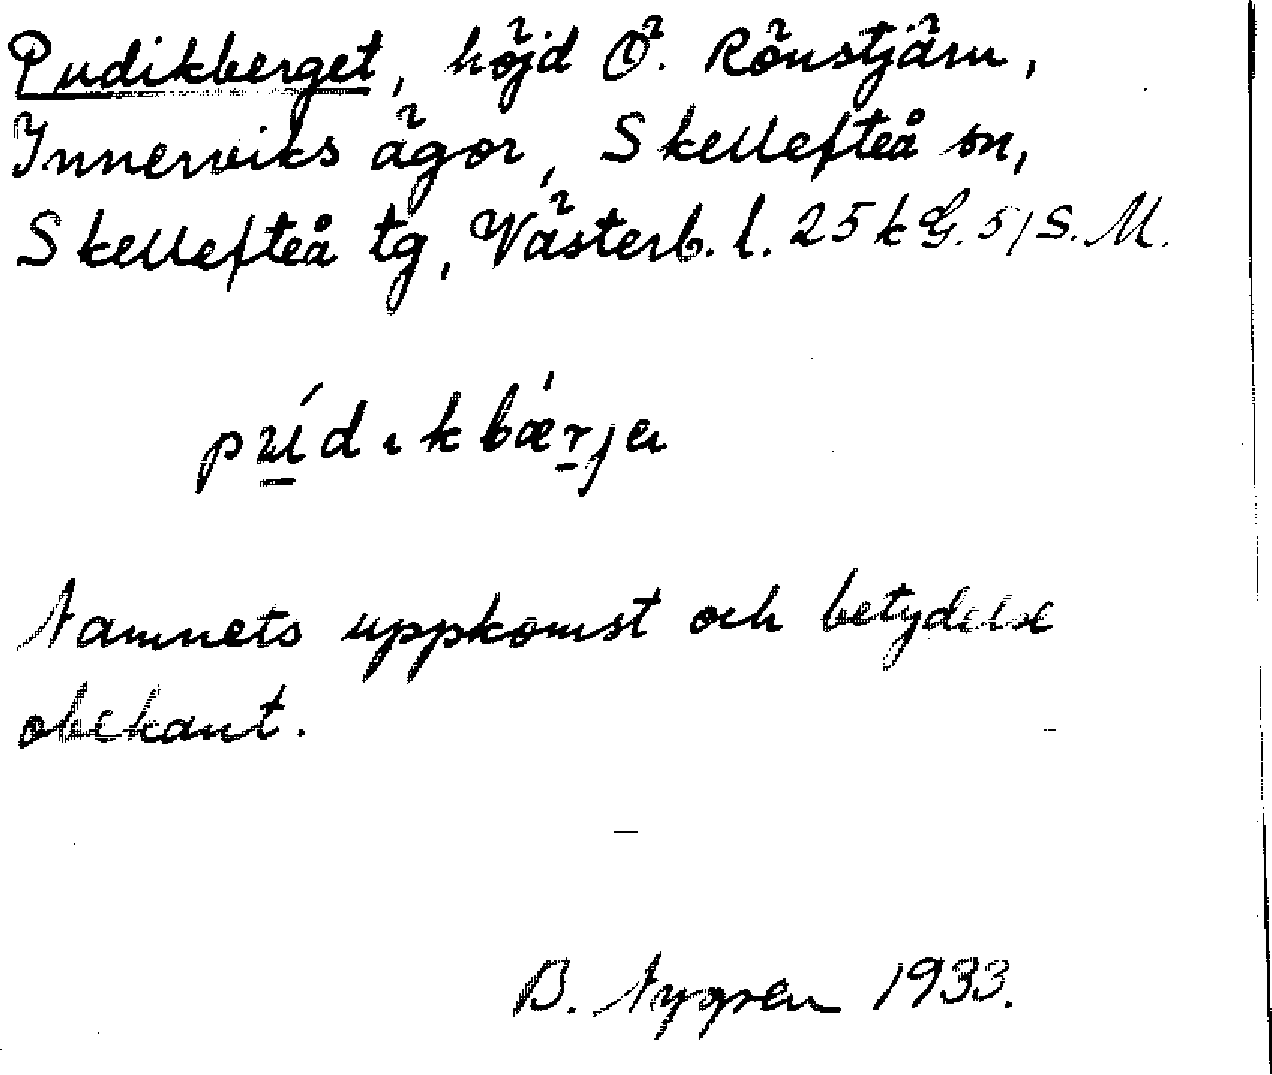 Pudikberget, höjd Ö. Rönstjärn,
Innerviks ägor, Skellefteå sn,
Skellefteå tg, Västerb. l. 25 k G. 5/ S. M.
pú̲dıkbær̲ja
Namnets uppkomst och betydelse
obekant.
B. Nygren 1933.